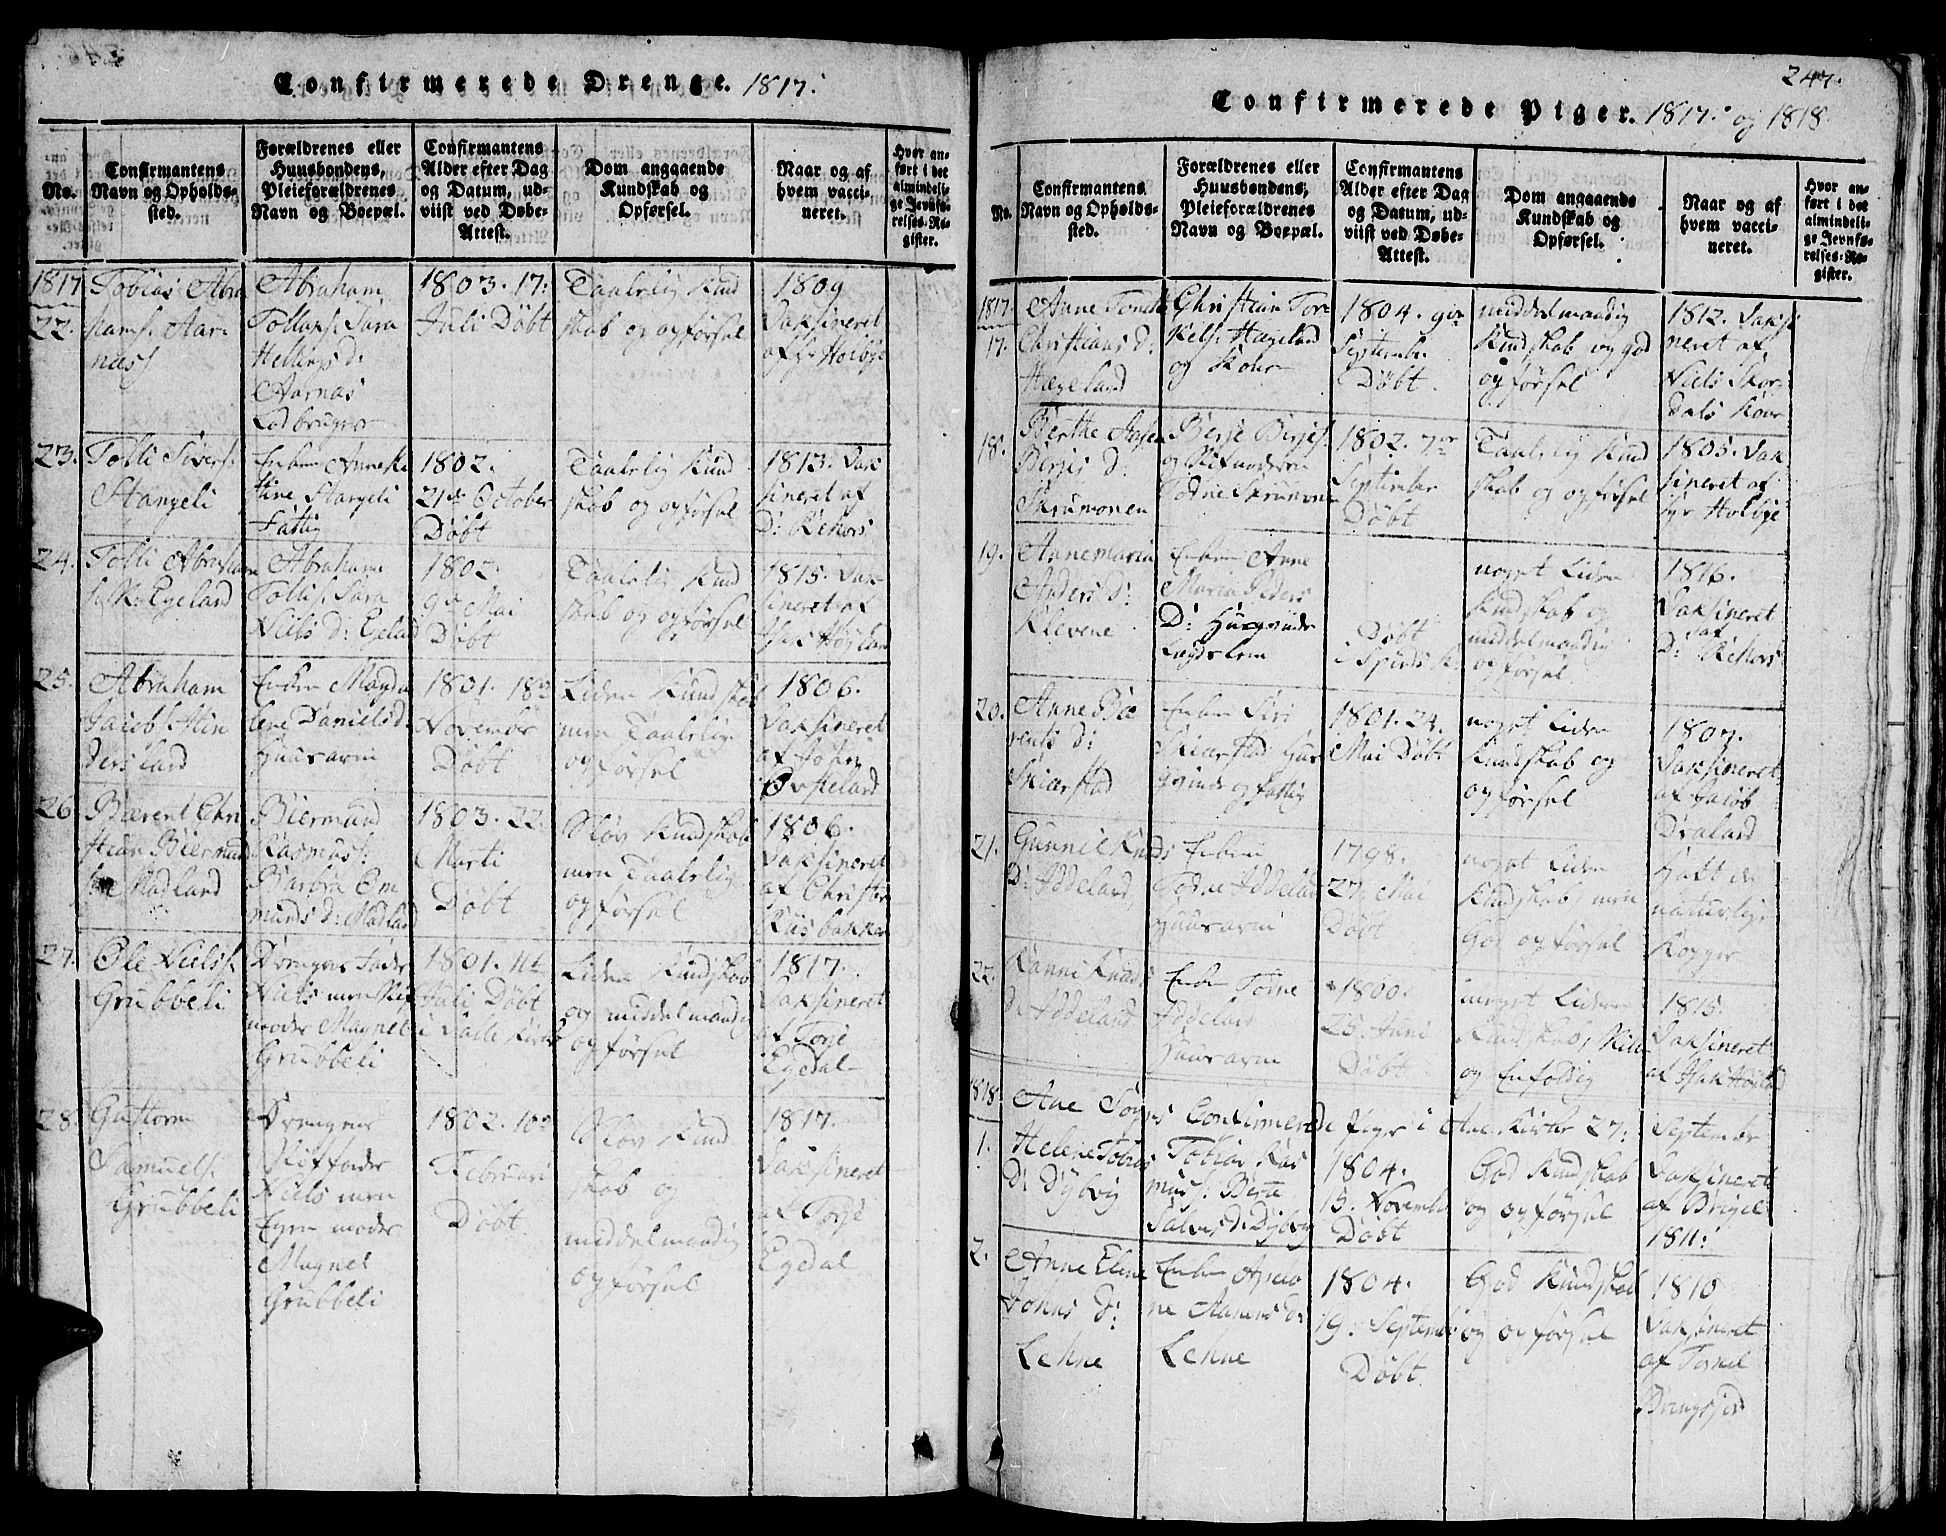 Confirmerede Drenge. 1817.
No.
Confirmantens Navn og Opholds-sted.
Forældrenes eller Huusbondens, Pleieforældrenes Navn og Boepæl.
Confirmantens Alder efter Dag og Datum, ud-viist ved Døbe-Attest.
Dom angaaende Kundskab og Opførsel.
Naar og af hvem vacci-neret.
Hvor an-ført i det almindeli-ge Jevnfø-relses-Re-gister.
1817
22.
Tobias Abra
hams. Aar
næss
Abraham
Tollaps. Sara
Hellings d:
Aarnæs
1803. 17:
Juli Døbt
Taalelig Kund
skab og opførsel
1809
Vaksineret
af Hr Holbye
23.
Tolli Sivers.
Stangeli
Enken Anne Ki
stine Stangeli
Fattig
1802.
21de October
Døbt
Taalelig Kund
skab og opførsel
1813. Vak
sineret af
D: Rehors
24.
Tolli Abraham
s. K: Egeland
Abraham
Tollis. Sara
Niels d: Egeland
1802.
9de Mai
Døbt
Taalelig Kund
skab og opførsel
1815. Vak
sineret af
Isak Høyland
25.
Abraham
Jacobs.
dersland
Enken Magda
lene Daniels d.
Huusarm
1801. 18de
November
Døbt
Liden Kundskab
men Taalelig
opførsel
1806.
Vaksineret
af John
Øvsteland
26
Bærent Chri
stian Biermund
Madland
Biermund
Rasmus.
Barbra Om
munds d: Madland
1803. 22.
Marti
Døbt
Sløv Kundskab
men Taalelig
opførsel
1806.
Vaksineret
af Christen
Riisbakken
27.
Ole Niels.
Grubbeli
Drengens Fader
Niels men Stif
moder Magnel
Grubbeli
1801. 11te
Juli Døbt
i Valle Kirke
Liden Kundskab
og middelmaadig
opførsel
1817.
Vaksineret
af Torje
Egedal
28.
Guttorm
Samuels.
Grubbeli
Drengens
Stiffader
Niels men
Egen moder
Magnel
Grubbeli
1802. 10de
Februari
Døbt
Sløv Kund
skab og
middelmaadig
opførsel
1817.
Vaksineret
af Torje
Egedal
247.
Confirmerede Piger. 1817. og 1818.
No.
Confirmantens Navn og Opholds-sted.
Forældrenes eller Huusbondens, Pleieforældrenes Navn og Boepæl.
Confirmantens Alder efter Dag og Datum, ud-viist ved Døbe-Attest.
Dom angaaende Kundskab og Opførsel.
Naar og af hvem vacci-neret.
Hvor an-ført i det almindeli-ge Jevnfø-relses-Re-gister.
1817.
17.
Anne Tomine
Christians d:
Hægeland
Christian Tor
kels. Hægeland
og Kone
1804. 9de
September
Døbt.
middelmaadig
Kundskab og god
opførsel
1812. Vaksi
neret af
Niels Skor
dals Kone
18.
Berthe
Berjes d:
Skrumoen
Berje Berjes.
og Stifmoderen
Todne Skrumoen
1802. 7de
September
Døbt
Taalelig Kund
skab og opførsel
1805. Vak
sineret af
Hr Holbye
19.
Annemaria
Anders d:
Klevene
Enken Anne
Maria Peders
D:
Lægdslem
Døbt
noget Liden
Kundskab og
middelmaadig
opførsel.
1816.
Vaksineret
af
D: Rehors
20.
Anne Bæ
rents d:
Skiærstad
Enken Siri
Skiærstad Huus
qvinde og fattig
1801. 24.
Mai Døbt
noget Liden
Kundskab og
opførsel
1807.
Vaksineret
af Jacob
Draland
21.
Gunnil Knuds
D: Iddeland
Enken
Todne Iddeland
Huusarm
1798.
27. Mai
Døbt
noget Liden
Kundskab, men
God opførsel
Haft de
naturlige
Kopper
22.
Ranni Knuds
d: Iddeland
Enken Todne
Iddeland
Huusarm
1800.
25. Juni
Døbt
noget Liden
Kundskab, Stille
og Enfoldig
1815.
Vaksineret
af Isak Høyland
1818.
Ane Sogns Confirmerede Piger i Ane Kirke 27: September
1.
Helene Tobias
D: Dybvig
Tobias Ras
mus. Berte
Salves d: Dybvig
1804.
15. November
Døbt
God Kundskab
og opførsel
Vaksineret
af Brigel
1811.
2.
Anne Elene
Jonas d:
Lehne
Enken Apelo
ne Aanens d:
Lehne
1804.
19. September
Døbt.
God Kundskab
og opførsel
1810
Vaksineret
af Tornel